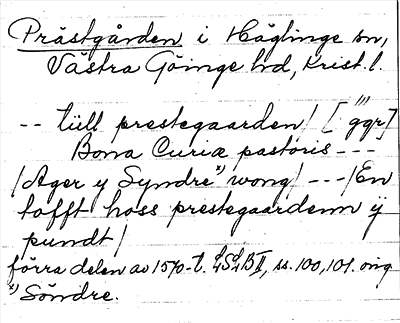 Prästgården i Häglinge sn,
Västra Göinge hd, Krist. l.
-- tüll prestegaarden/ [''' ggr]
Bona Curiæ pastoris ---
/Ager y Syndre x) wong/ ---/En
tofft hoss prestegaardenn ÿ
pundt/
förra delen av 1570-t. LSLB II, ss. 100, 101. orig
x) Söndre.